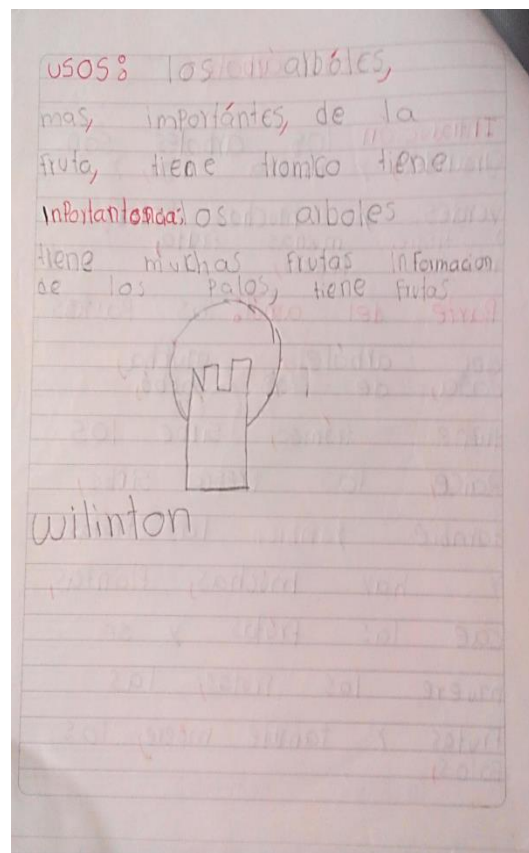 usos: los albóles,
mas, importántes, de la
fruta, tiene tromco tiene
los arboles
tiene muchas frutas informacion
de los palos, tiene frutas
wilinton